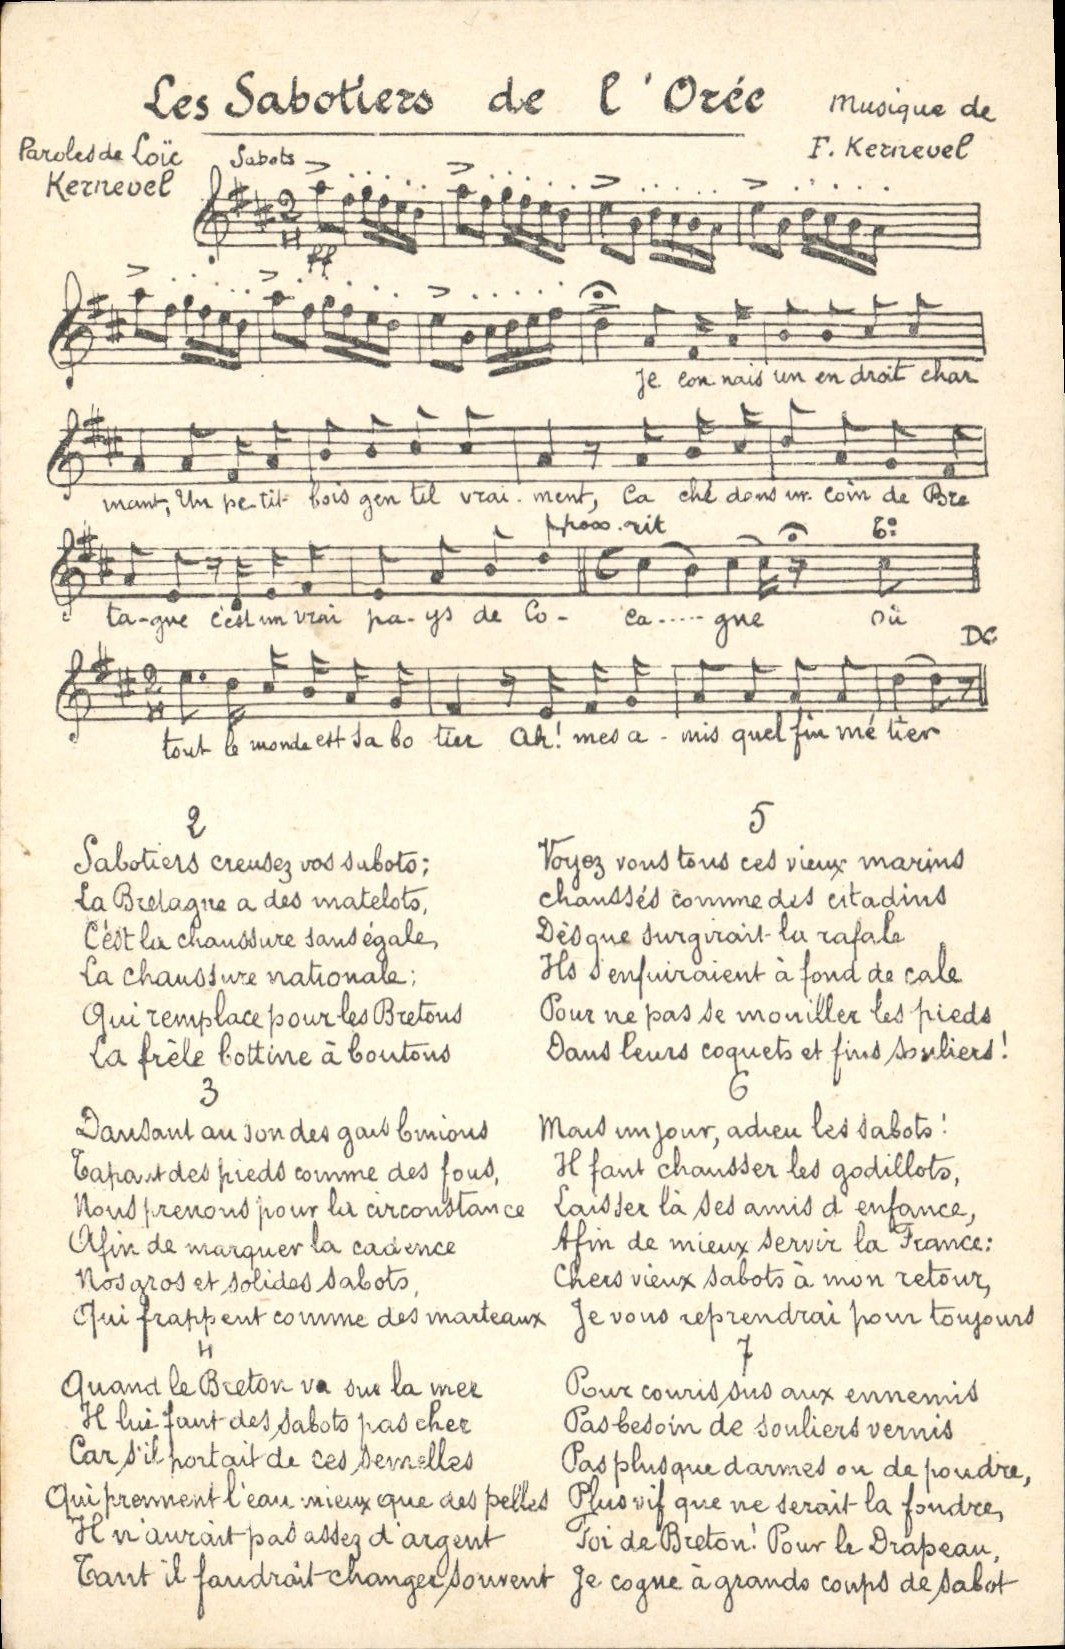 Les Sabotiers de l'Orée
Musique de
F. Kernevel
Paroles de Loïc
Kernevel
Sabots
pp
Je con nais un en droit char
mant, Un pe-tit bois gen til vrai-ment, Ca ché dans un coin de Bre
rit
ta-gne c'est un vrai pa-ys de Co- ca.....gne Où
DC
tout le monde est sa bo tier Ah! mes a-mis quel fin mé tier
2
Sabotiers creusez vos sabots;
La Bretagne a des matelots,
C'est la chaussure sans égale,
La chaussure nationale;
Qui remplace pour les Bretons
La frêle bottine à boutons
3
Dansant au son des gais binious
Tapant des pieds comme des fous,
Nous prenons pour la circonstance
Afin de marquer la cadence
Nos gros et solides sabots,
Qui frappent comme des marteaux
4
Quand le Breton va sur la mer
Il lui faut des sabots pas cher
Car s'il portait de ces semelles
Qui prennent l'eau mieux que des pelles
Il n'aurait pas assez d'argent
Tant il faudrait changer souvent
5
Voyez vous tous ces vieux marins
chaussés comme des citadins
Dès que surgirait la rafale
Ils s'enfuiraient à fond de cale
Pour ne pas se mouiller les pieds
Dans leurs coquets et fins souliers!
6
Mais un jour, adieu les sabots!
Il faut chausser les godillots,
Laisser là ses amis d'enfance,
Afin de mieux servir la France:
Chers vieux sabots à mon retour,
Je vous reprendrai pour toujours
7
Pour courir sus aux ennemis
Pas besoin de souliers vernis
Pas plus que darmes ou de poudre,
Plus vif que ne serait la foudre,
Foi de Breton! Pour le Drapeau,
Je cogne à grands coups de sabot